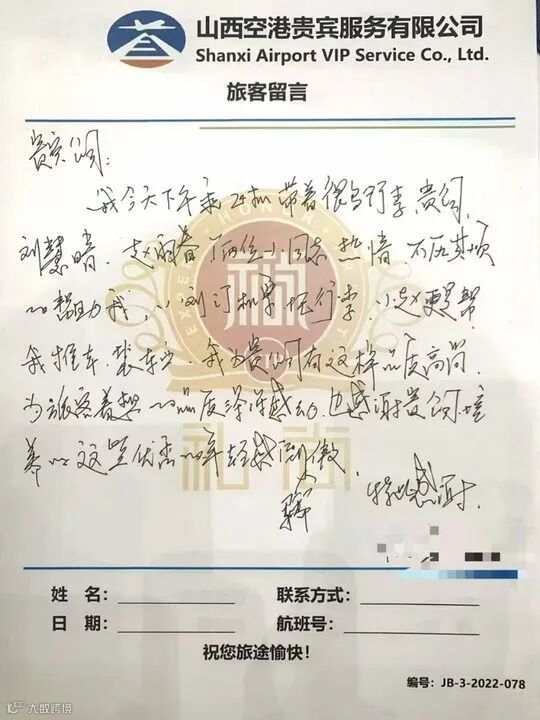 山西空港贵宾服务有限公司
Shanxi Airport VIP Service Co., Ltd.
旅客留言
贵宾公司：
我今天下午乘 带着很多行李 贵公司
刘慧晴、赵丽春 两位小同志 热情、不厌其烦
的帮助我，小刘 订机票 托行李，小赵更是帮
我推车、装车，我为贵公司有这样品质高尚、
为旅客着想的品质深深感动，也感谢贵公司培
养的这些优秀的年轻 感到骄傲
特此感谢！
EXCELLENT
HONOR
和尚
姓 名：
联系方式：
日 期：
航班号：
祝您旅途愉快！
编号：JB-3-2022-078
大数跨境